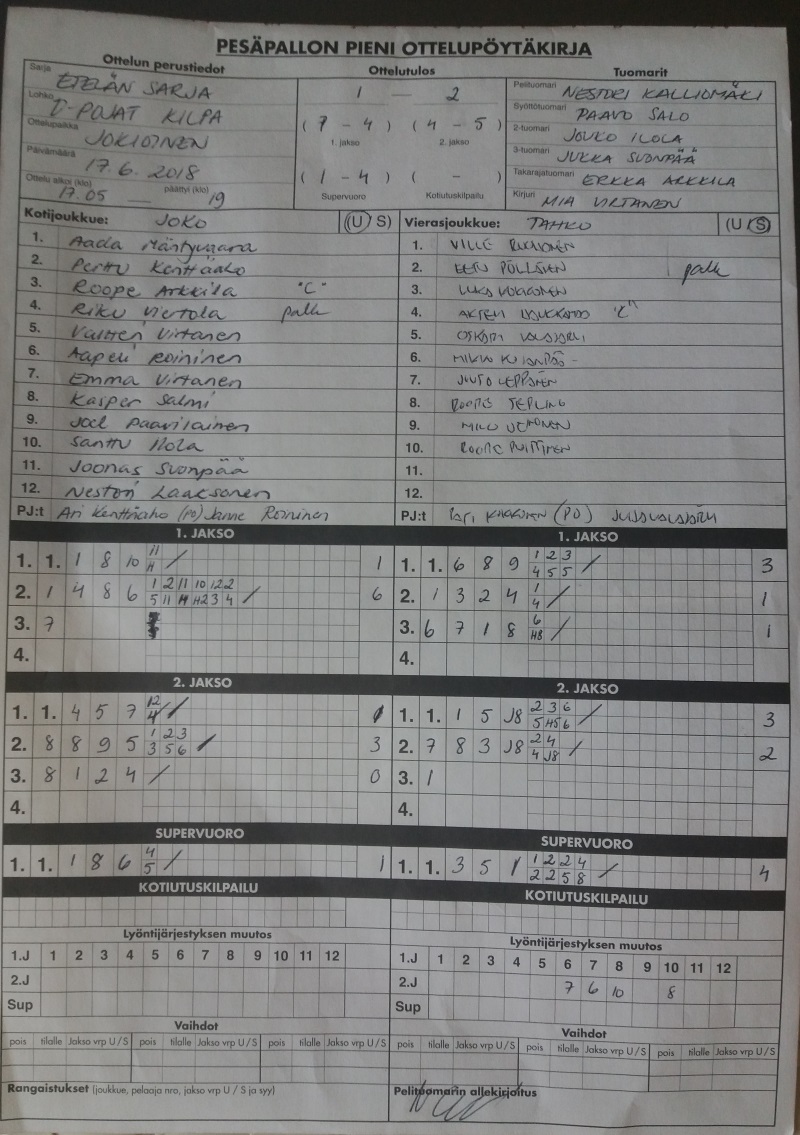 PESÄPALLON PIENI OTTELUPÖYTÄKIRJA
Ottelun perustiedot Ottelutulos Tuomarit
Sarja ETELÄN SARJA 1 — 2 Pelituomari NESTORI KALLIOMÄKI
Lohko D-POJAT KILPA Syöttötuomari PAAVO SALO
Ottelupaikka JOKIOINEN (7 - 4) (4 - 5) 2-tuomari JOUKO ILOLA
1. jakso 2. jakso 3-tuomari JUKKA SUONPÄÄ
Päivämäärä 17.6.2018 (1 - 4) ( - ) Takarajatuomari ERKKA ARKKILA
Ottelu alkoi (klo) 17.05 — päättyi (klo) 19 Supervuoro Kotiutuskilpailu Kirjuri MIA VIRTANEN
Kotijoukkue: JOKO (U/S) Vierasjoukkue: TAHKO (U/S)
1. Aada Mäntyvaara 1. VILLE
2. Perttu Kenttäaho 2. EETU PÖLLÄNEN palk
3. Roope Arkkila "C" 3.
4. Riku Viertola palk 4. "C"
5. Valtteri Virtanen 5. OSKARI
6. Aapeli Roininen 6.
7. Emma Virtanen 7. JUUSO LEPPÄNEN
8. Kasper Salmi 8. ROOPE
9. Joel Paavilainen 9.
10. Santtu Ilola 10. ROOPE
11. Joonas Suonpää 11.
12. Nestori Laaksonen 12.
PJ:t Ari Kenttäaho (PO) Janne Roininen PJ:t (PO)
1. JAKSO 1. JAKSO
1. 1. 1 8 10 11 / 1 1. 1. 6 8 9 1 2 3 / 3
4 5 5
2. 1 4 8 6 1 2 11 10 12 2 / 6 2. 1 3 2 4 1 / 1
4
3. 7 3. 6 7 1 8 6 / 1
H8
4. 4.
2. JAKSO 2. JAKSO
1. 1. 4 5 7 12 / 1. 1. 1 5 J8 2 3 6 / 3
4 5 H5 6
2. 8 8 9 5 1 2 3 / 3 2. 7 8 3 J8 2 4 / 2
3 5 6 4 J8
3. 8 1 2 4 / 0 3. 1
4. 4.
SUPERVUORO SUPERVUORO
1. 1. 1 8 6 4 / 1 1. 1. 3 5 1 1 2 2 4 / 4
5 2 2 5 8
KOTIUTUSKILPAILU KOTIUTUSKILPAILU
Lyöntijärjestyksen muutos Lyöntijärjestyksen muutos
1.J 1 2 3 4 5 6 7 8 9 10 11 12 1.J 1 2 3 4 5 6 7 8 9 10 11 12
2.J 2.J 7 6 10 8
Sup Sup
Vaihdot Vaihdot
pois tilalle Jakso vrp U / S pois tilalle Jakso vrp U / S pois tilalle Jakso vrp U / S pois tilalle Jakso vrp U / S pois tilalle Jakso vrp U / S pois tilalle Jakso vrp U / S
Rangaistukset (joukkue, pelaaja nro, jakso vrp U / S ja syy) Pelituomarin allekirjoitus